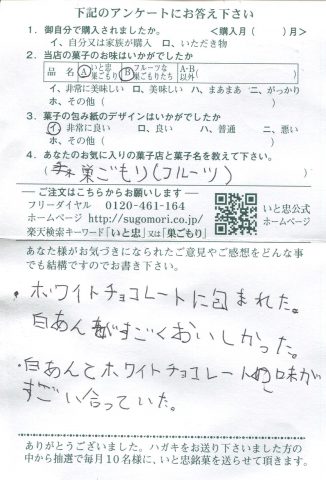 下記のアンケートにお答え下さい
1．御自分で購入されましたか。　＜購入月（　　）月＞
イ、自分又は家族が購入　ロ、いただき物
2．当店の菓子のお味はいかがでしたか
品　名　Ⓐいと忠巣ごもり　Ⓑフルーツな巣ごもりたち　A･B以外（　　）
イ、非常に美味しい　ロ、美味しい　ハ、まあまあ　ニ、がっかり
ホ、その他（　　）
3．菓子の包み紙のデザインはいかがでしたか
イ、非常に良い　ロ、良い　ハ、普通　ニ、悪い
ホ、その他（　　）
4．あなたのお気に入りの菓子店と菓子名を教えて下さい。
（　巣ごもり(フルーツ)　）
ご注文はこちらからお願いします
フリーダイヤル　0120-461-164
ホームページ　http://sugomori.co.jp/
楽天検索キーワード「いと忠」又は「巣ごもり」
いと忠公式
ホームページ
あなた様がお気づきになられたご意見やご感想をどんな事
でも結構ですのでお書き下さい。
・ホワイトチョコレートに包まれた。
白あんがすごくおいしかった。
・白あんとホワイトチョコレートの味が
すごい合っていた。
ありがとうございました。ハガキをお送り下さいました方の
中から抽選で毎月10名様に、いと忠銘菓を送らせて頂きます。